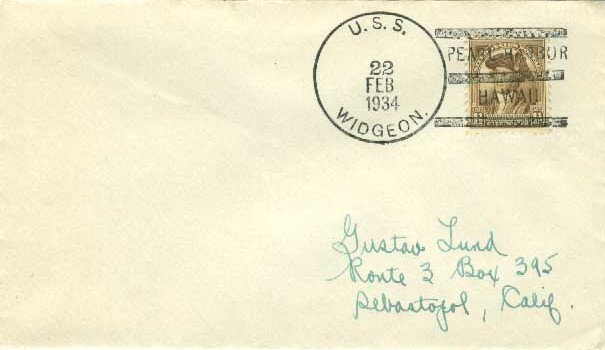 U. S. S.
22
FEB
1934
WIDGEON.
PEARL HARBOR
HAWAII
Gustav Lund
Route 3 Box 395
Sebastopol, Calif.